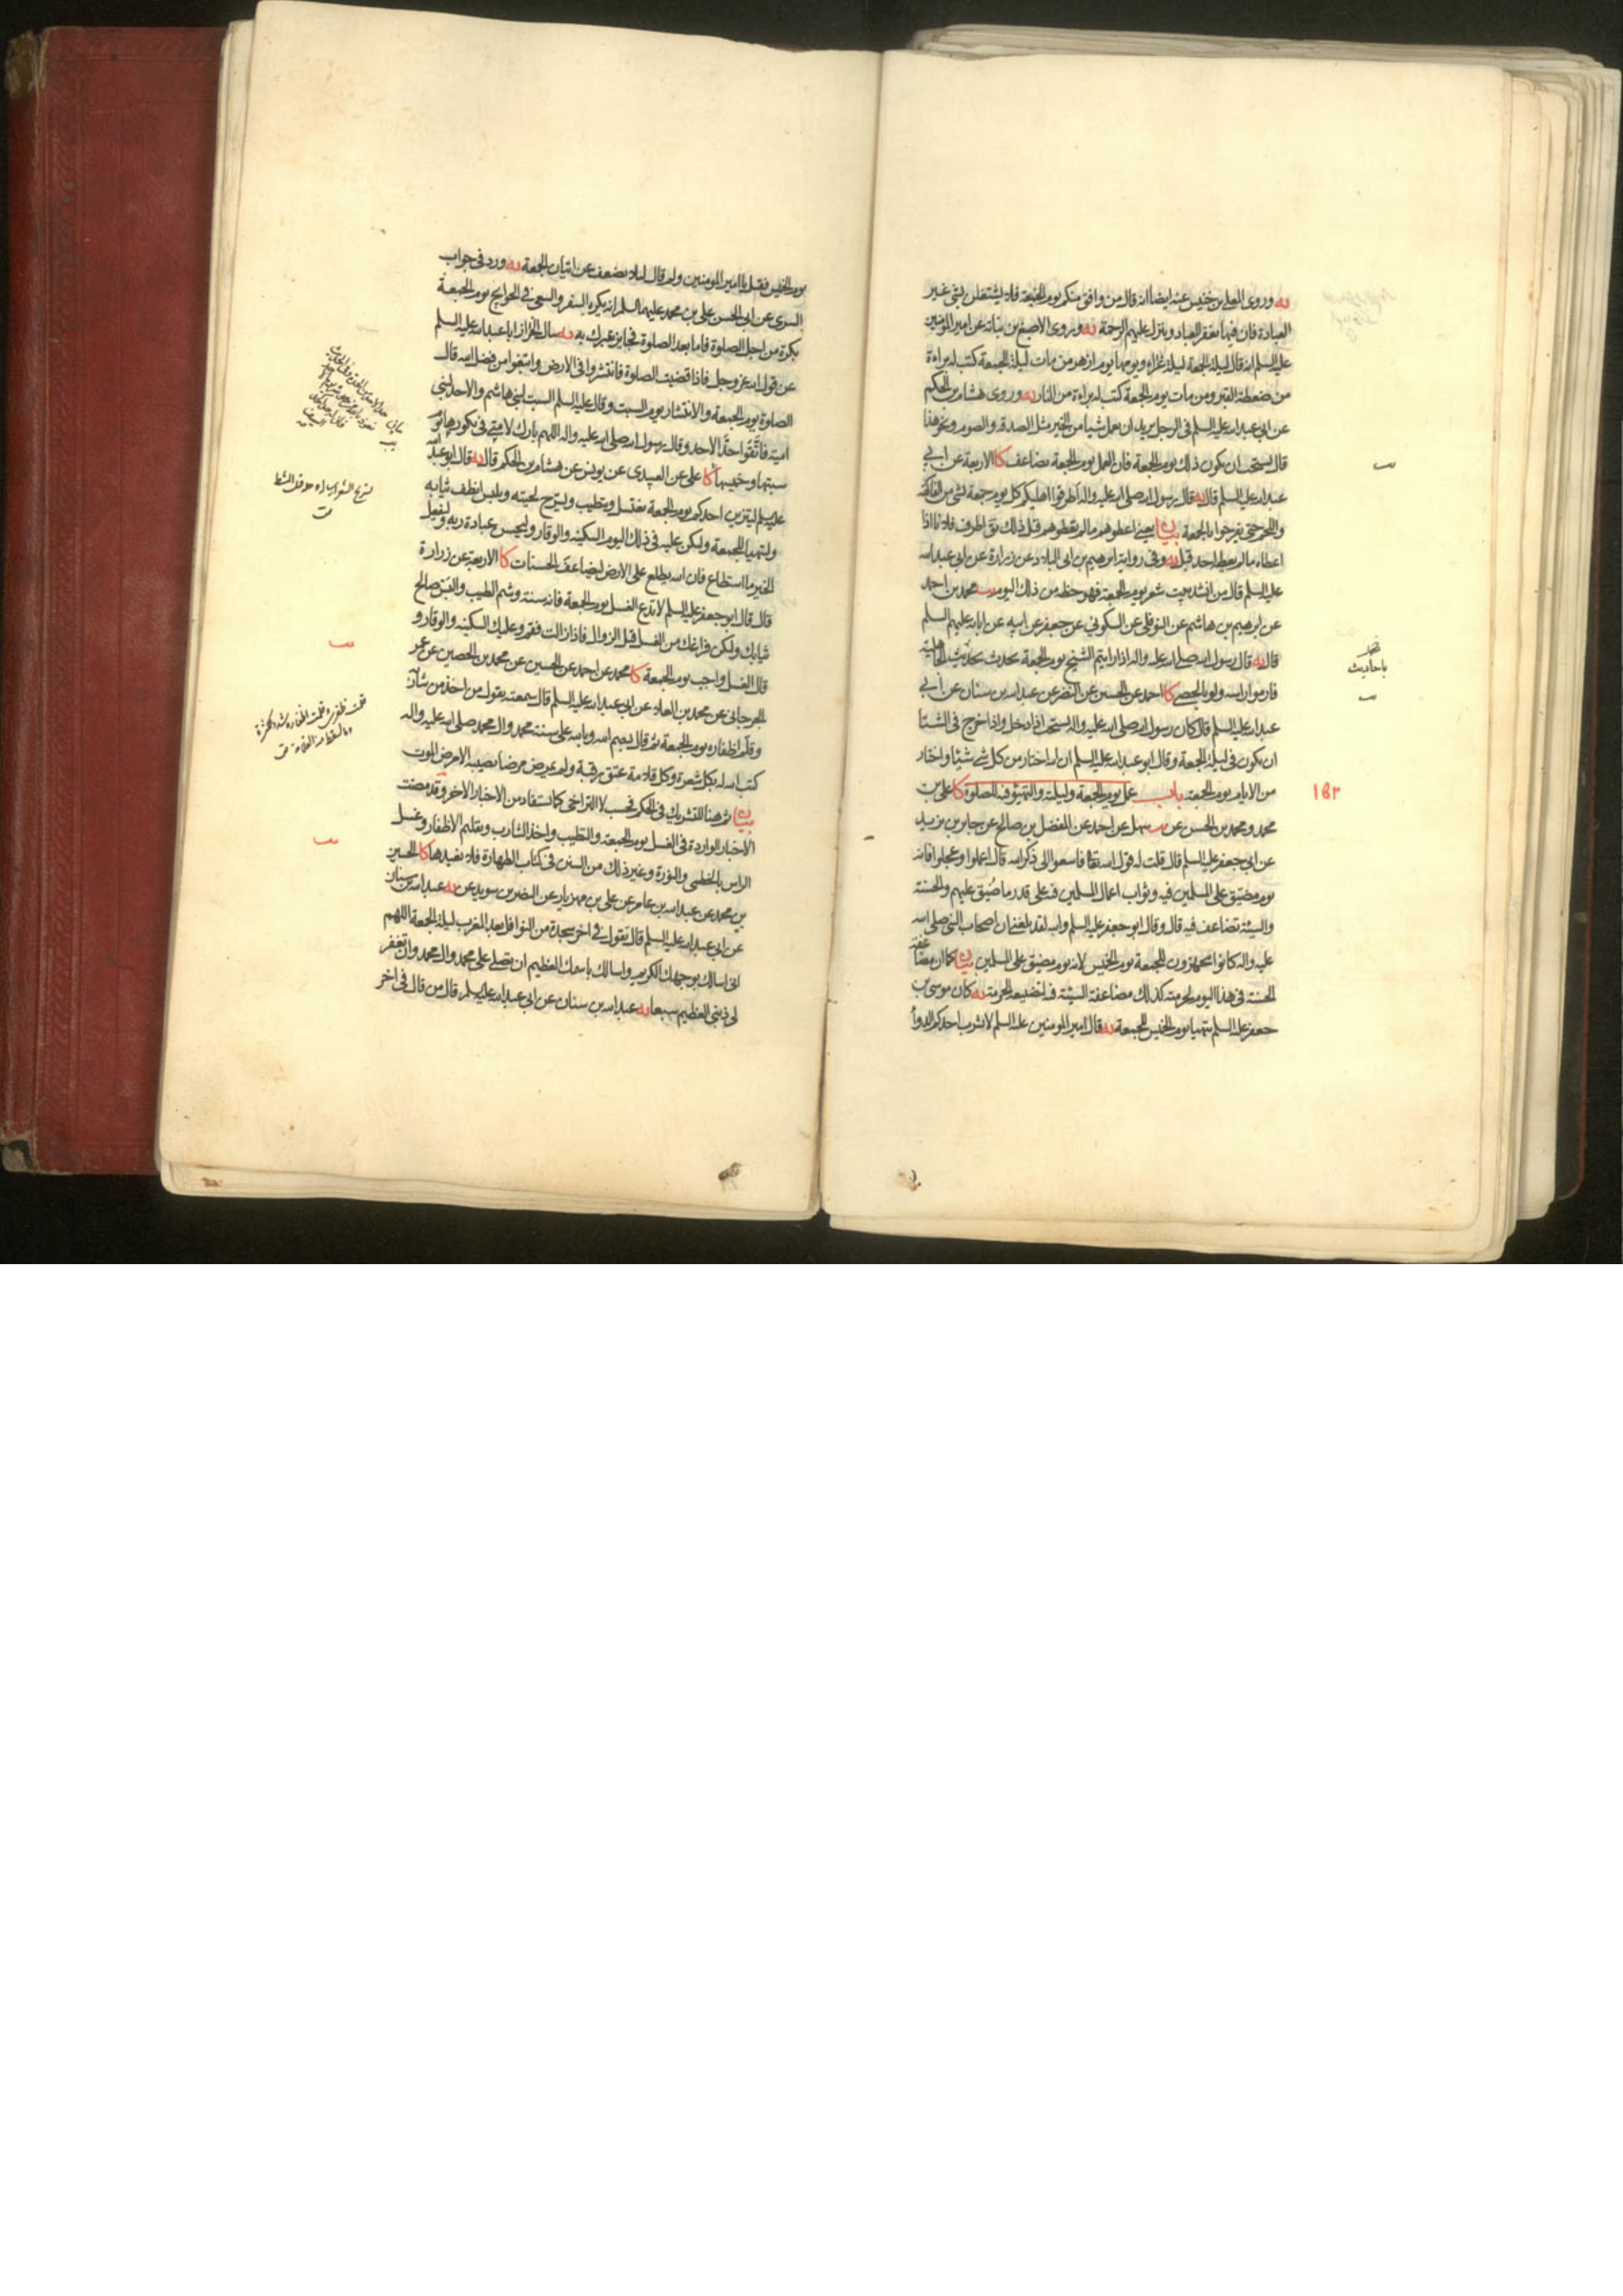 يه وروى المعلى بن خنيس عنه ايضا انه قال من وافق منكم يوم الجمعة فلا يشتغلن بشئ غير
العبادة فان فيها يغفر للعباد وينزل عليهم الرحمة يه وروى الاصبغ بن نباتة عن امير المؤمنين
عليه السلم انه قال ليلة الجمعة ليلة غراء ويومها يوم ازهر من مات ليلة الجمعة كتب له براءة
من ضغطة القبر ومن مات يوم الجمعة كتب له براءة من النار يه وروى هشام بن الحكم
عن ابي عبد الله عليه السلم في الرجل يريد ان يعمل شيئا من الخير مثل الصدقة والصوم ونحو هذا
قال يستحب ان يكون ذلك يوم الجمعة فان العمل يوم الجمعة يضاعف كا الاربعة عن ابي
عبد الله عليه السلم قال يه قال رسول الله صلى الله عليه واله اطرفوا اهاليكم كل يوم جمعة بشئ من الفاكهة
واللحم حتى يفرحوا بالجمعة بيان يعني اعطوهم ما لم تعطوهم قبل ذلك يق اطرف فلانا اذا
اعطاه ما لم يعطه احد قبله يه وفي رواية ابرهيم بن ابي البلاد عن زرارة عن ابي عبد الله
عليه السلم قال من انشد بيت شعر يوم الجمعة فهو حظه من ذلك اليوم يب محمد بن احمد
عن ابرهيم بن هاشم عن النوفلي عن السكوني عن جعفر عن ابيه عن ابائه عليهم السلم
قال يه قال رسول الله صلى الله عليه واله اذا رايتم الشيخ يوم الجمعة يحدث بحديث الجاهلية
فارموا راسه ولو بالحصى كا احمد عن الحسين عن النضر عن عبد الله بن سنان عن ابي
عبد الله عليه السلم قال كان رسول الله صلى الله عليه واله يستحب اذا دخل واذا خرج في الشتا
ان يكون في ليلة الجمعة وقال ابو عبد الله عليه السلم ان الله اختار من كل شئ شيئا واختار
من الايام يوم الجمعة باب عمل يوم الجمعة وليلته والتهيؤ فيه للصلوة كا علي بن
محمد ومحمد بن الحسن عن يب سهل عن احمد عن المفضل بن صالح عن جابر بن يزيد
عن ابي جعفر عليه السلم قال قلت له قول الله تعالى فاسعوا الى ذكر الله قال اعملوا وعجلوا فانه
يوم مضيق على المسلمين فيه وثواب اعمال المسلمين فيه على قدر ما ضيق عليهم والحسنة
والسيئة تضاعف فيه قال وقال ابو جعفر عليه السلم والله لقد بلغني ان اصحاب النبي صلى الله
عليه واله كانوا يتجهزون للجمعة يوم الخميس لانه يوم مضيق على المسلمين بيان كما ان مضاعفة
الحسنة في هذا اليوم لحرمته كذلك مضاعفة السيئة فيه لتضييعه الحرمته يه كان موسى بن
جعفر عليه السلم يتهيا يوم الخميس للجمعة يه قال امير المؤمنين عليه السلم لا يشرب احدكم الدواء
باحاديث
١٥٢
يوم الخميس فقيل يا امير المؤمنين ولم قال لئلا يضعف عن اتيان الجمعة يه ورد في جواب
السري عن ابي الحسن علي بن محمد عليهما السلم انه يكره السفر والسعي في الحوايج يوم الجمعة
بكرة من اجل الصلوة فاما بعد الصلوة فجايز يتبرك به يه سال الخزاز ابا عبد الله عليه السلم
عن قول الله عز وجل فاذا قضيت الصلوة فانتشروا في الارض وابتغوا من فضل الله قال
الصلوة يوم الجمعة والانتشار يوم السبت وقال عليه السلم السبت لبني هاشم والاحد لبني
امية فاتقوا اخذ الاحد وقال رسول الله صلى الله عليه واله اللهم بارك لامتي في بكورها يوم
سبتها وخميسها كا علي عن العبيدي عن يونس عن هشام بن الحكم قال يه قال ابو عبد الله
عليه السلم ليتزين احدكم يوم الجمعة يغتسل ويتطيب ويسرح لحيته ويلبس انظف ثيابه
وليتهيا للجمعة وليكن عليه في ذلك اليوم السكينة والوقار وليحسن عبادة ربه وليفعل
الخير ما استطاع فان الله يطلع على الارض ليضاعف الحسنات كا الاربعة عن زرارة
قال قال ابو جعفر عليه السلم لا تدع الغسل يوم الجمعة فانه سنة وشم الطيب والبس صالح
ثيابك وليكن فراغك من الغسل قبل الزوال فاذا زالت فقم وعليك السكينة والوقار و
قال الغسل واجب يوم الجمعة كا محمد عن احمد عن الحسين عن محمد بن الحصين عن عمر
الجرجاني عن محمد بن العلاء عن ابي عبد الله عليه السلم قال سمعته يقول من اخذ من شاربه
وقلم اظفاره يوم الجمعة ثم قال بسم الله وبالله على سنة محمد وال محمد صلى الله عليه واله
كتب الله له بكل شعرة وكل قلامة عتق رقبة ولم يمرض مرضا يصيبه الا مرض الموت
بيان ثم هنا للتشريك في الحكم فحسب لا التراخي كما يستفاد من الاخبار الاخر وقد مضت
الاخبار الواردة في الغسل يوم الجمعة والتطيب واخذ الشارب وتقليم الاظفار وغسل
الراس بالخطمي والنورة وغير ذلك من السنن في كتاب الطهارة فلا نعيدها كا الحسين
بن محمد عن عبد الله بن عامر عن علي بن مهزيار عن النضر بن سويد عن يه عبد الله بن سنان
عن ابي عبد الله عليه السلم قال تقول في اخر سجدة من النوافل بعد المغرب ليلة الجمعة اللهم
اني اسالك بوجهك الكريم واسالك باسمك العظيم ان تصلي على محمد وال محمد وان تغفر
لي ذنبي العظيم سبعا يه عبد الله بن سنان عن ابي عبد الله عليه السلم قال من قال في اخر